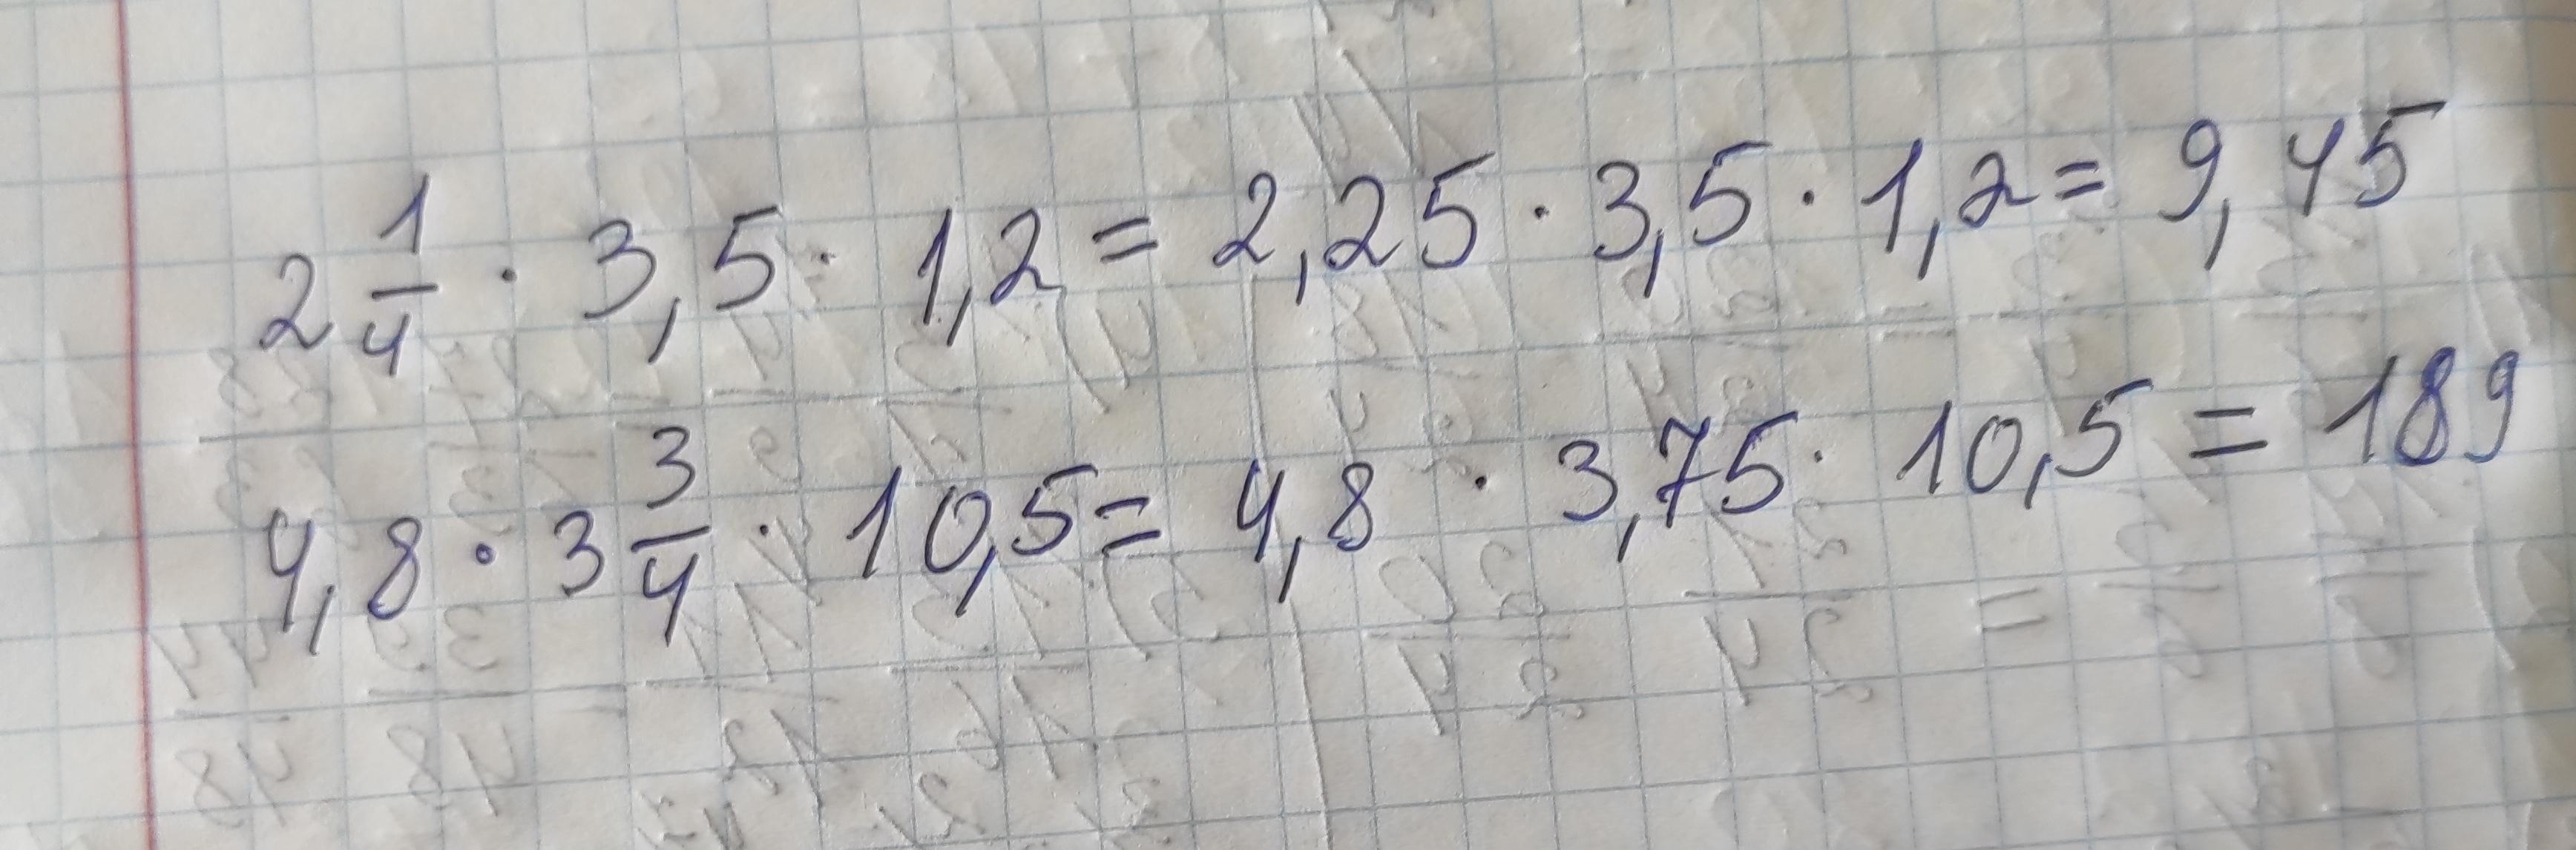 2 1/4 · 3,5 · 1,2 = 2,25 · 3,5 · 1,2 = 9,45
4,8 · 3 3/4 · 10,5 = 4,8 · 3,75 · 10,5 = 189